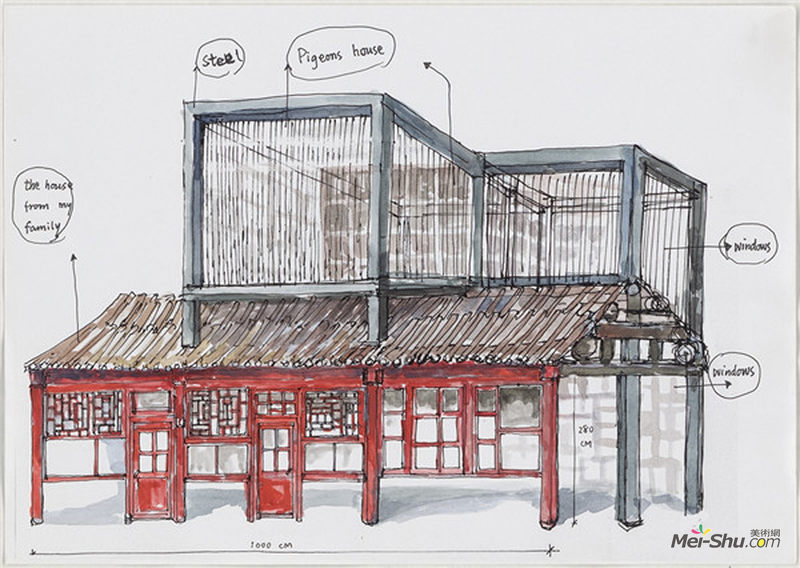 steel
Pigeons house
the house
from my
family
windows
windows
280
CM
1000 CM
美術網
Mei-Shu.com